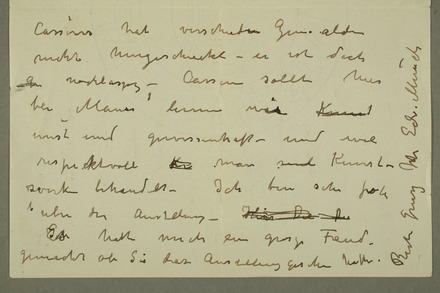 Cassirer hat verschieden Gem. alden
nicht hingeschickt – er ist doch
nachlässig – Cassirer sollte hier
bei Manes lernen wie
ernst und gewissenhaft – und wie
respektvoll man Kunst-
werke behandelt – Ich bin sehr froh
über die Ausstellung –
Es hatte mich ein grose Freud.
gemacht ob Sie diese Ausstellung gesehen hätte.
Beste Grus Ihr Edv. Munch